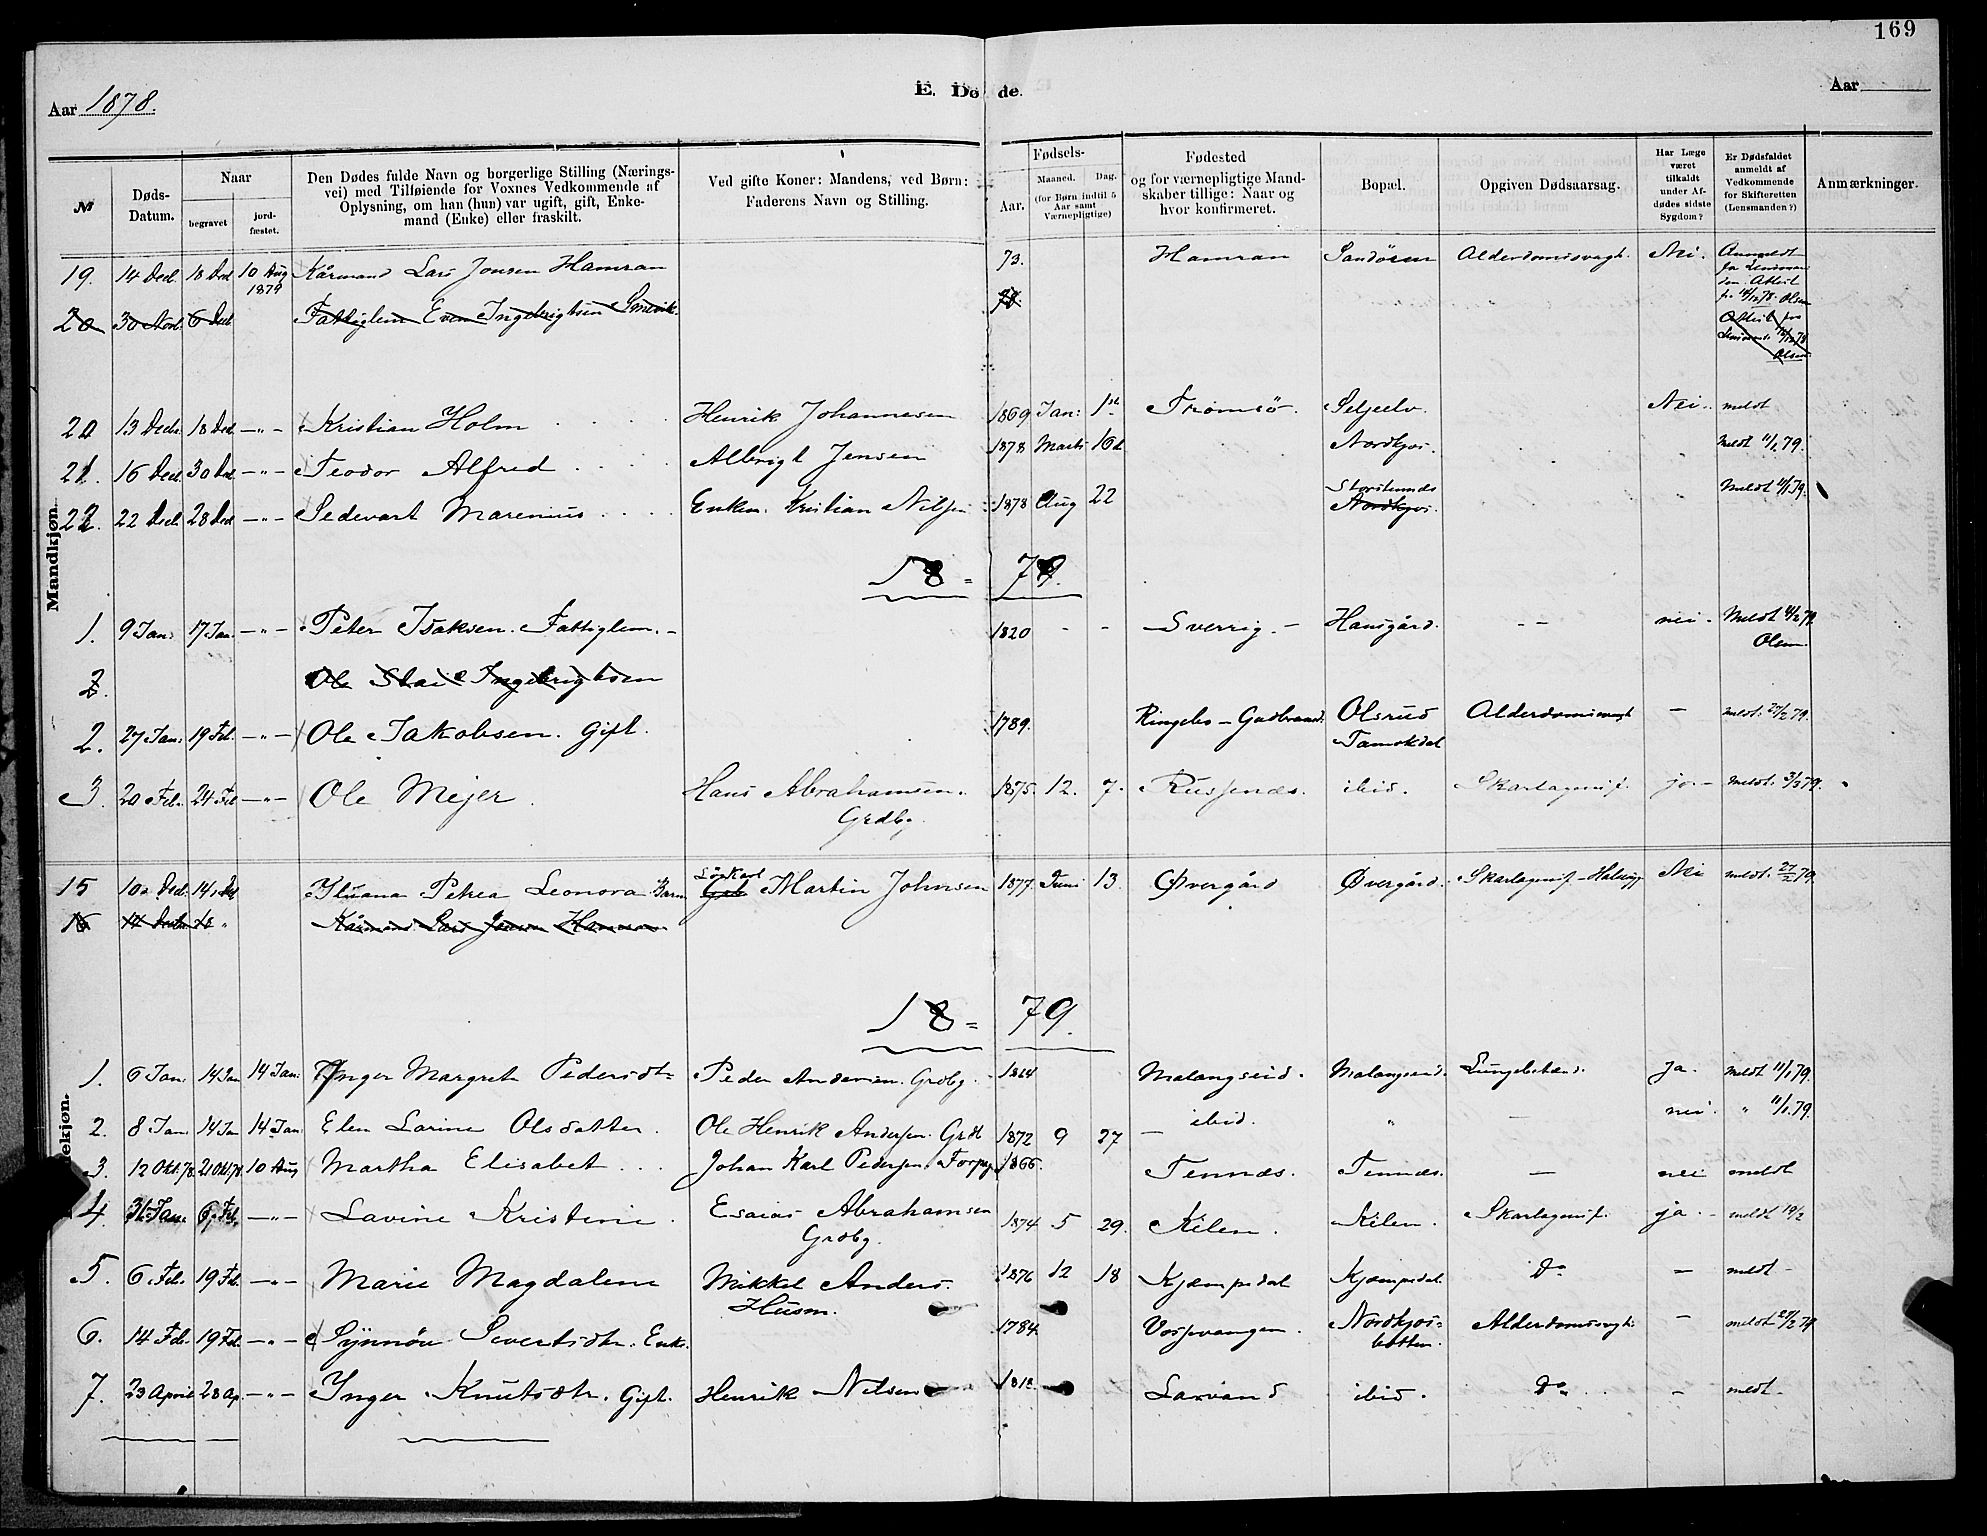 169
Aar 1878.
E. Dø de.
Aar
№
Døds-Datum.
Naar
begravet
jord-fæstet.
Den Dødes fulde Navn og borgerlige Stilling (Nærings-
vei) med Tilføiende for Voxnes Vedkommende af
Oplysning, om han (hun) var ugift, gift, Enke-
mand (Enke) eller fraskilt.
Ved gifte Koner: Mandens, ved Børn:
Faderens Navn og Stilling.
Fødsels-
Aar.
Maaned. Dag.
(for Børn indtil 5
Aar samt
Værnepligtige)
Fødested
og for værnepligtige Mand-
skaber tillige: Naar og
hvor konfirmeret.
Bopæl.
Opgiven Dødsaarsag.
Har Læge
været
tilkaldt
under Af-
dødes sidste
Sygdom?
Er Dødsfaldet
anmeldt af
Vedkommende
for Skifteretten
(Lensmanden?)
Anmærkninger.
Mandkjøn.
19. 14 Decl 18 Decl 10 Aug 1879 Kårmand Lars Jonsen Hamran 73. Hamran Sandøren Alderdomssvagh. Nei.
20 30 Novb 6 Decl Fattiglem Even Ingebrigtsen
20 13 Decb. 18 Decl -"- Kristian Holm Henrik Johannesen 1869 Jan: 1st Tromsö. Seljeelv. Nei. meldt
21. 16 Decl 30 Decl -"- Teodor Alfred Albrigt Jensen 1878 Marts 16d Nordkjos. Meldt 11/1 79.
22. 22 Decb. 28 Decl -"- Sedevart Marenius Enkem. Kristian Nilsen 1878 Aug 22 Nordkjos. Meldt 11/1 79.
18 = 79.
1. 9 Jan: 17 Jan. -"- Peter Isaksen. Fattiglem. - 1820 - - Sverrig. - Hansgård. - - nei. Meldt 4/2 79 Olsen
2. Ole Ingebrigtsen
2. 27 Jan: 19 Feb. -"- Ole Jakobsen. Gift. 1789. Ringebo - Gudbrand. Olsrud Tamokdal Alderdomssvagh - meldt. 27/2 79.
3. 20 Feb. 24 Feb -"- Ole Mejer. Hans Abrahamsen. Grdbg. 1875. 12. 7. Russenæs. ibid. Skarlagensf. ja - meldt. 3/3 79.
15 10 Decl. 14 Decl Petrea Leonora Barn Martin Johnsen 1877. Juni 13. Øvergård Øvergård. Skarlagensf. - Nei meldt. 27/2 79.
16 14 Decbr 18 " Kårmand Lars Jonsen Hamran
18 = 79.
ekjøn.
1. 6 Jan: 14 Jan 14 Jan: Inger Margret Pedersdt= Peder Andersen. Grdbg. Malangseid. Malangseid. ja. meldt 11/1 79.
2. 8 Jan 14 Jan 14 Jan: Elen Larine Olsdatter. Ole Henrik Andersen. Grdb 1872 9 27 - ibid. " - nei. " 11/1 79.
3. 12 Okt. 78. 21 Okt 78 10 Aug Martha Elisabet Johan Karl Pedersen. 1866. Tennæs. Tennæs. - nei meldt
4. 31 Jan. 6 Feb. -"- Lavine Kristine. Esaias Abrahamsen Grdbg. 1874 5 29. Kilen. Kilen. Skarlagensf. ja. - meldt 19/2
5. 6 Feb. 19 Feb. -"- Marie Magdalene Mikkel Anders. Husm. 1876 12 18 Kjempedal Kjempedal Do - meldt -
6. 14 Feb. 19 Feb. -"- Synnöv Severtsdtr. Enke. 1784 Vossevangen. Nordkjos= botten. Alderdomssvagh - meldt 27/2 79
7. 23 April 28 Ap. -"- Inger Knutsdtr. Gift. Henrik Nilsen 1812 Larvand ibid. Do. - meldt.